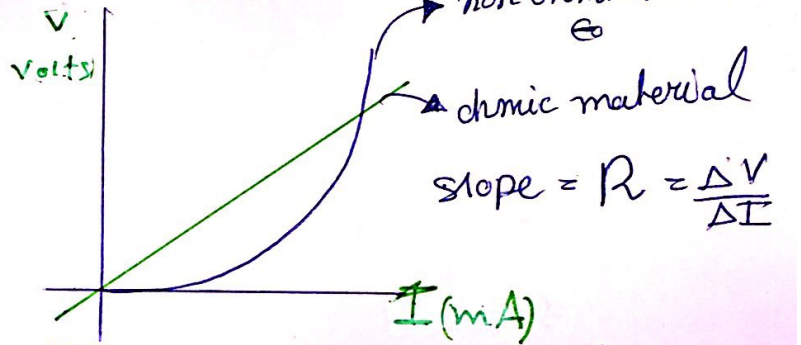 V
Volts
ohmic material
slope = R = ΔV/ΔI
I (mA)